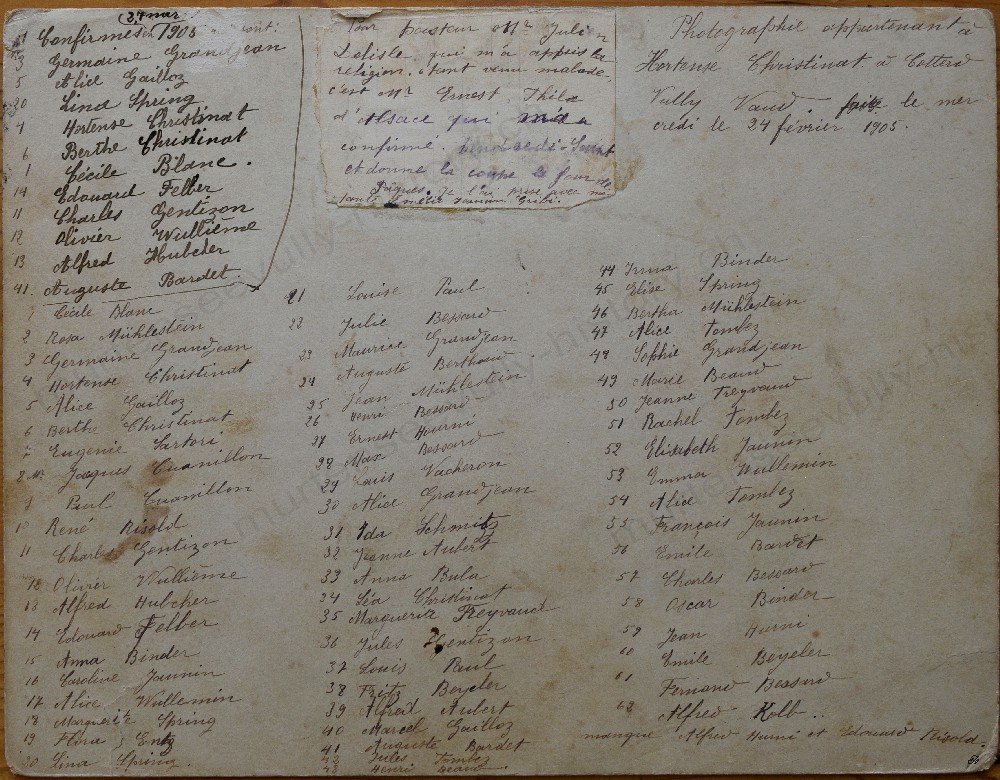 27 mar
Confirmés en 1905 sont:
3 Germaine Grandjean
5 Alice Gailloz
20 Lina Spring
4 Hortense Christinat
6 Berthe Christinat
1 Cécile Blanc.
14 Edouard Felber
11 Charles Gentizon
12 Olivier Wullième
13 Alfred Hubcher
41. Auguste Bardet.
Pasteur Mr. Julien
Delisle qui m'a appris la
religion. étant venu malade,
c'est Mr Ernest
d'Alsace qui m'a
confirmé.
et donne la coupe le jour de
Pâques. je l'ai prise avec ma
tante
Photographie appartenant à
Hortense Christinat à Cotterd
Vully Vaud faite le mer
credi le 24 février 1905.
1 Cécile Blanc
2 Rosa Mühlestein
3 Germaine Grandjean
4 Hortense Christinat
5 Alice Gailloz
6 Berthe Christinat
7 Eugenie Sartori
8 Mr. Jacques Cuanillon
9 Paul Cuanillon
10 René Risold
11 Charles Gentizon
12 Olivier Wullième
13 Alfred Hubcher
14 Edouard Felber
15 Anna Binder
16 Caroline Jaunin
17 Alice Wullemin
18 Marguerite Spring
19 Flora Entz
20 Lina Spring.
21 Louise Paul
22 Julie Bessard
23 Maurice Grandjean
24 Auguste Berthoud
25 Jean Mühlestein
26 Henri Bessard
27 Ernest Hurni
28 Max Bessard
29 Louis Vacheron
30 Alice Grandjean
31 Ida Schmitz
32 Jeanne Aubert
33 Anna Bula
34 Léa Christinat
35 Marguerite Treyvaud
36 Jules Gentizon
37 Louis Paul
38 Fritz Beyeler
39 Alfred Aubert
40 Marcel Gailloz
41 Auguste Bardet
42 Jules Tombez
43 Henri Beaud
44 Irma Binder
45 Elise Spring
46 Bertha Mühlestein
47 Alice Tombez
48 Sophie Grandjean
49 Marie Beaud
50 Jeanne Treyvaud
51 Rachel Tombez
52 Elisabeth Jaunin
53 Emma Wullemin
54 Alice Tombez
55 François Jaunin
56 Emile Bardet
57 Charles Bessard
58 Oscar Binder
59 Jean Hurni
60 Emile Beyeler
61 Fernand Bessard
62 Alfred Kolb..
manque Alfred Hurni et Edouard Risold.